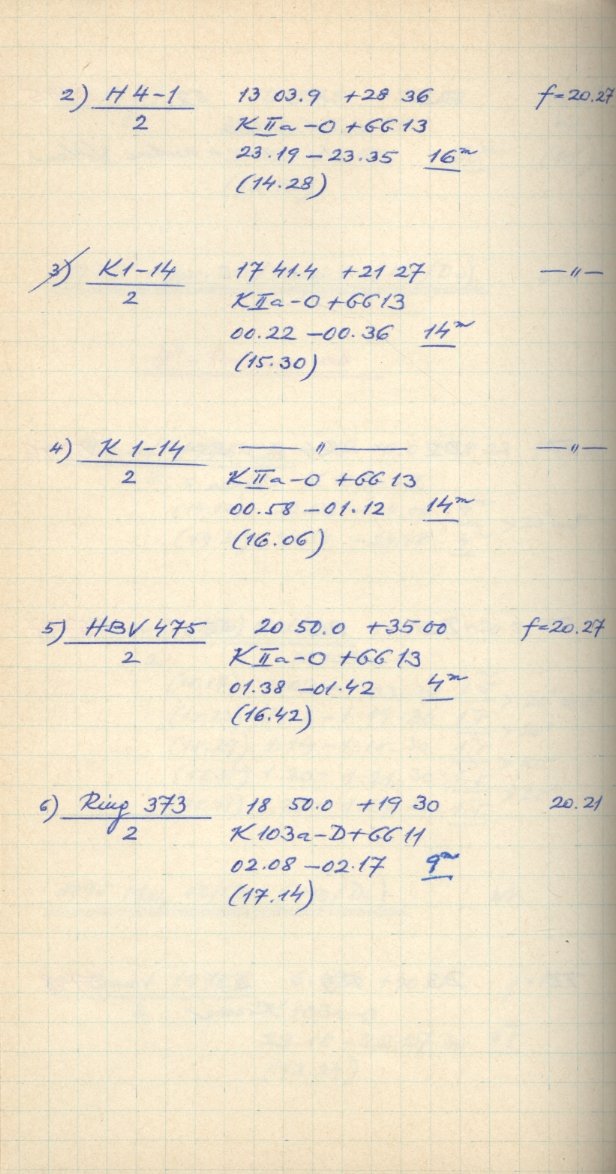 2) H 4-1 13 03.9 +28 36 f=20.27
2 KIIa-O+GG13
23.19-23.35 16m
(14.28)
3) K1-14 17 41.4 +21 27 —"—
2 KIIa-O+GG13
00.22-00.36 14m
(15.30)
4) K 1-14 —"— —"—
2 KIIa-O+GG13
00.58-01.12 14m
(16.06)
5) HBV 475 20 50.0 +35 00 f=20.27
2 KIIa-O+GG13
01.38-01.42 4m
(16.42)
6) Ring 373 18 50.0 +19 30 20.21
2 K103a-D+GG11
02.08-02.17 9m
(17.14)